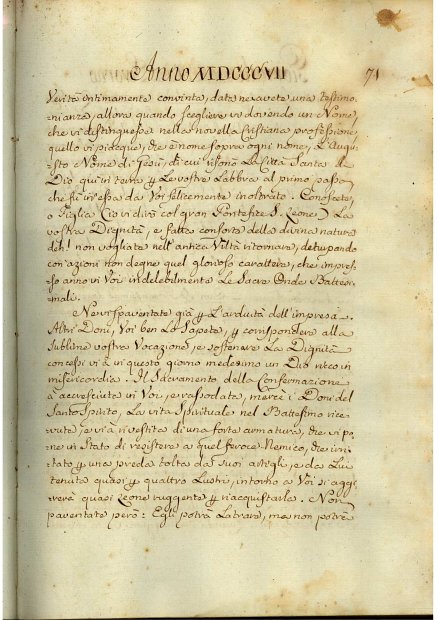 Anno MDCCCVII
71
Verità intimamente convinta, data ne avete una testimo-
nianza, allora quando scegliere vi dovendo un Nome,
che vi distinguesse nella novella Cristiana professione,
quello vi piacque, che è nome sopra ogni nome, l'Augu-
sto Nome di Gesù, di cui risonò la Città Santa di
Dio qui in terra per le vostre labbra al primo passo,
che fù in essa da Voi felicemente inoltrato. Conoscete,
o Figlia (io vi dirò col gran Pontefice S. Leone) la
vostra Dignità, e fatta consorte della divina natura
deh! non vogliate nell'antica Viltà ritornare, deturpando
con azioni non degne quel glorioso carattere, che impres-
so anno in Voi indelebilmente le Sacre Onde Battesi-
mali.
Ne vi spaventate già per l'arduità dell'impresa.
Altri Doni, Voi ben lo sapete, per corrispondere alla
sublime vostra Vocazione, e sostenere la Dignità
concessi vi à in questo giorno medesimo un Dio ricco in
misericordia. Il Sacramento della Confermazione
à accresciuta in Voi, e rassodata, mercè i Doni del
Santo Spirito, la vita Spirituale nel Battesimo rice-
vuta, e vi à rivestita di una forte armatura, che vi po-
ne in Stato di resistere a quel feroce Nemico, che irri-
tato per una preda tolta da suoi artigli, e da Lui
tenuta quasi per quattro Lustri, intorno a Voi si aggi-
rerà quasi Leone ruggente per riacquistarla. Non
paventate però: Egli potrà latrare, ma non potrà